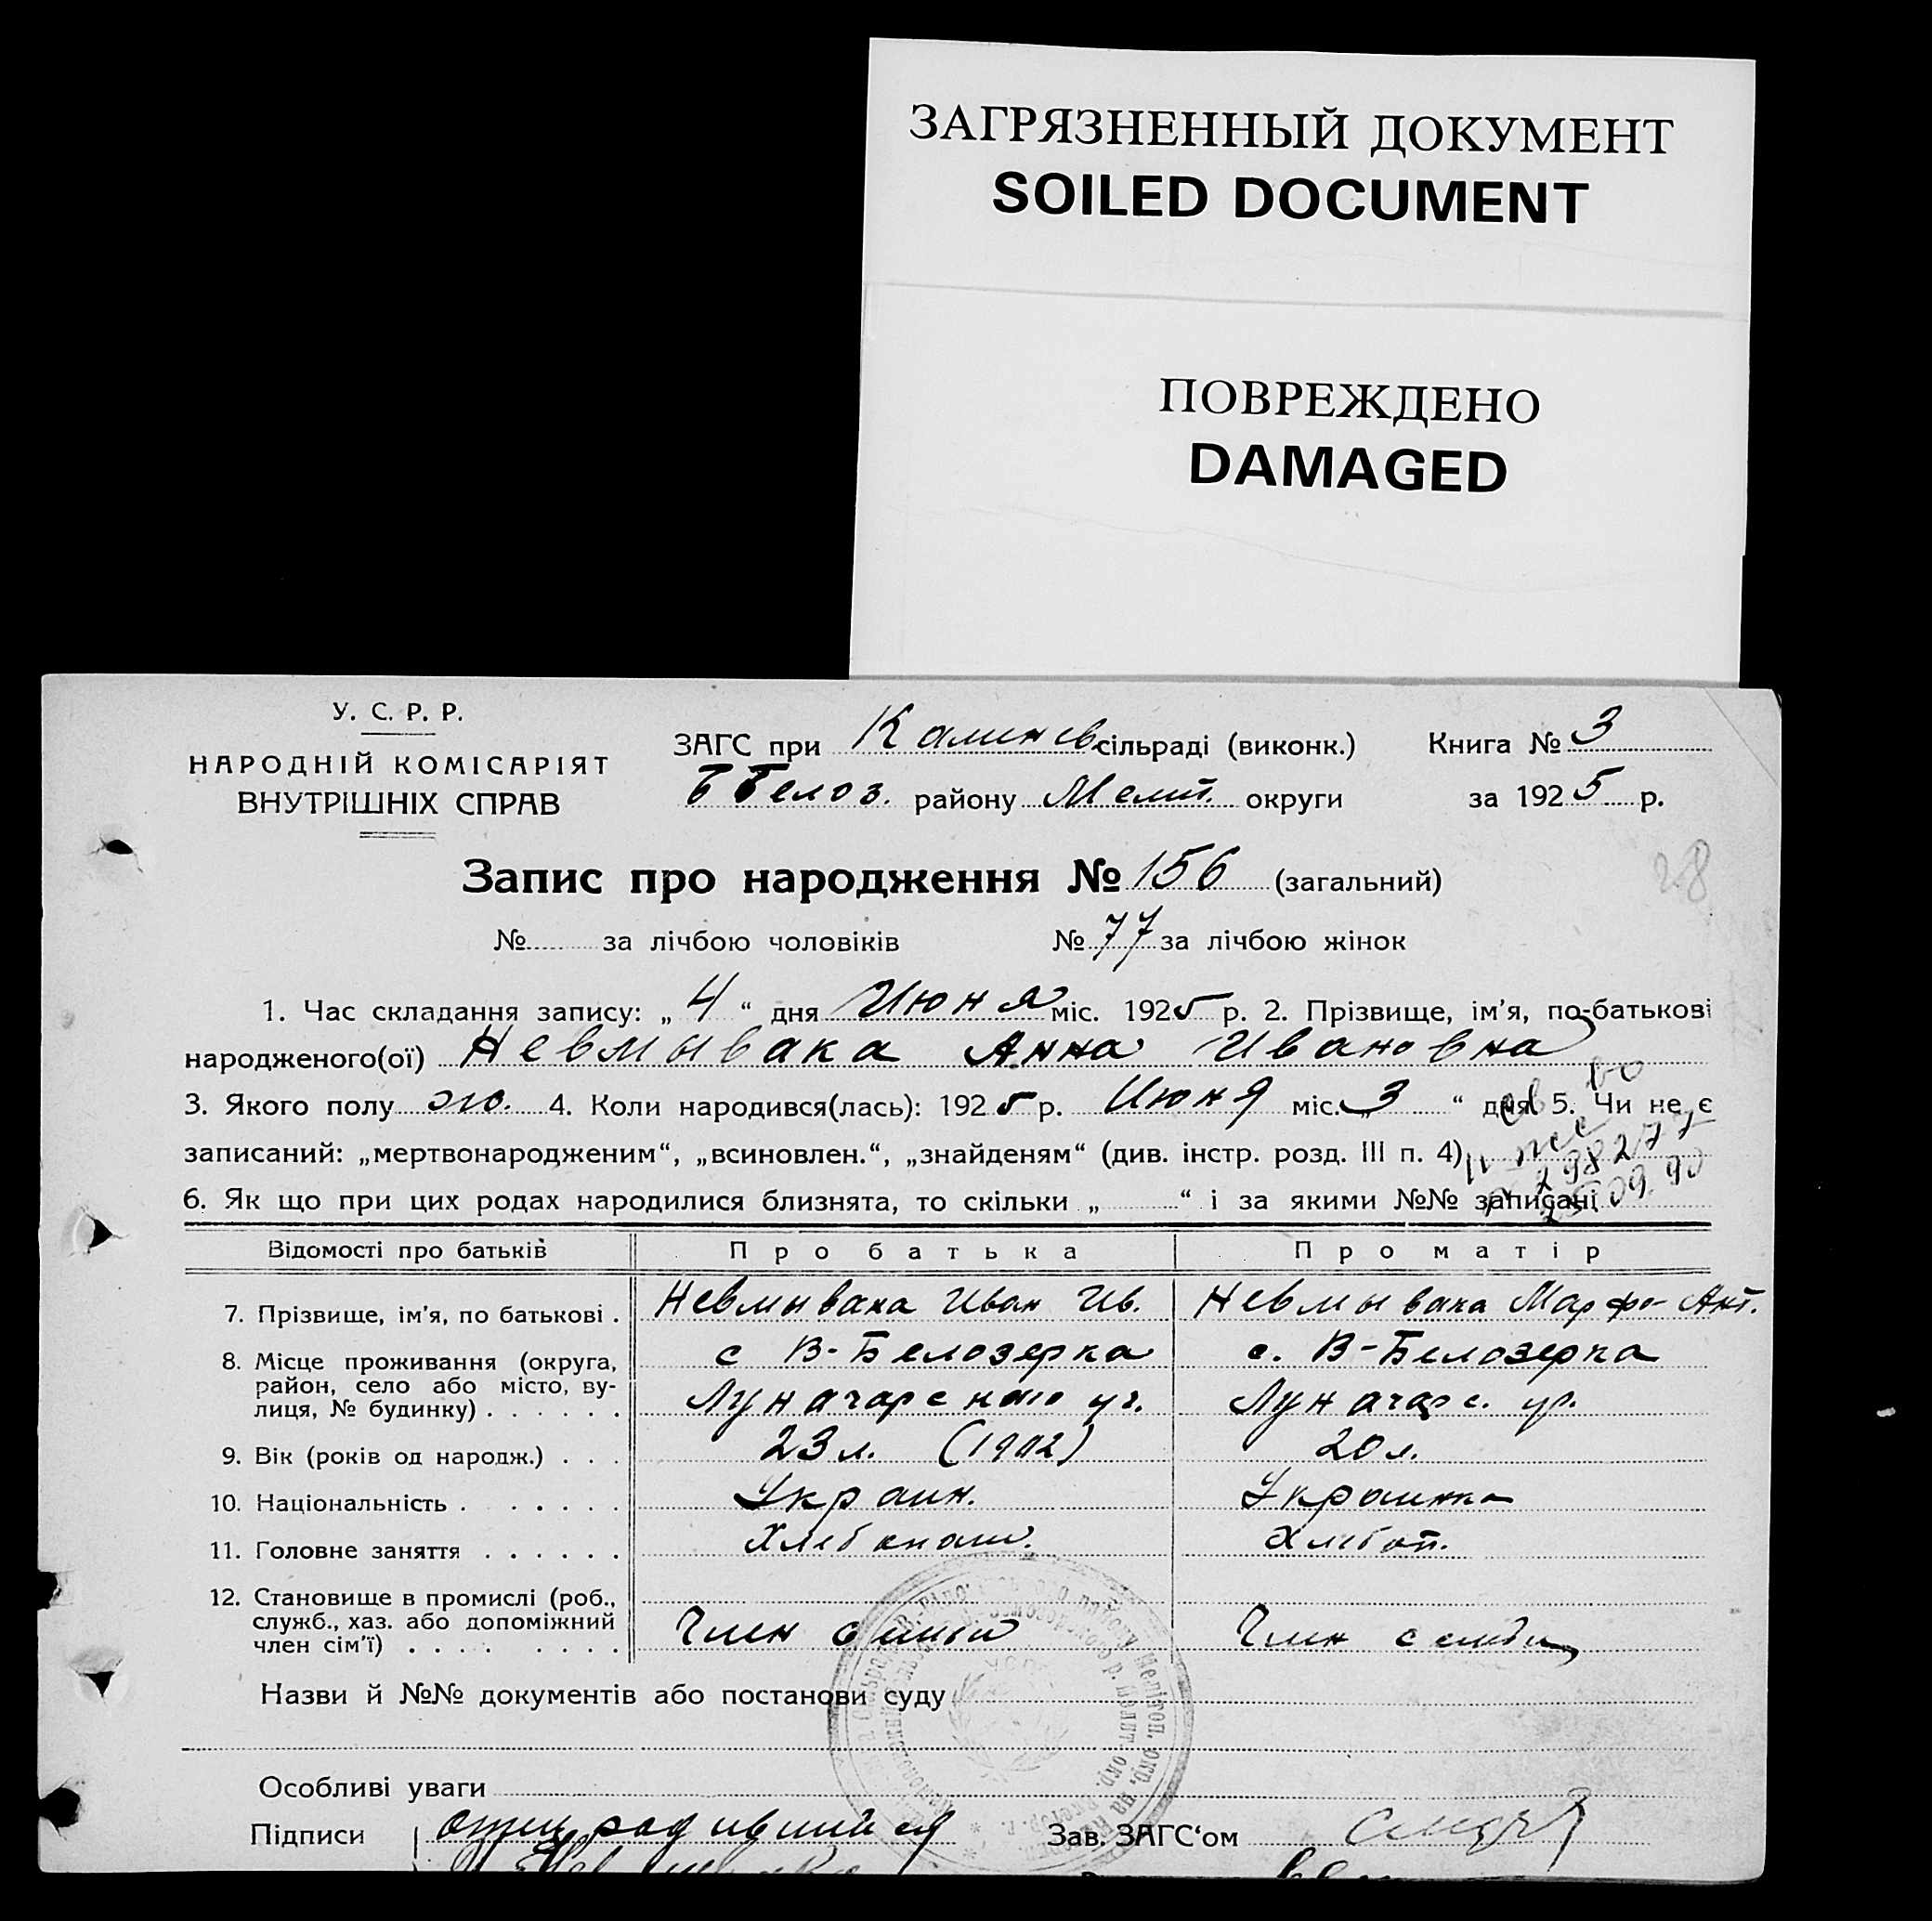 ЗАГРЯЗНЕННЫЙ ДОКУМЕНТ
SOILED DOCUMENT
ПОВРЕЖДЕНО
DAMAGED
У. С. Р. Р.
НАРОДНІЙ КОМІСАРІЯТ
ВНУТРІШНІХ СПРАВ
ЗАГС при Калинов. сільраді (виконк.)
Книга № 3
Белоз. району Мелит. округи
за 1925 р.
Запис про народження № 156 (загальний)
28
№ за лічбою чоловіків № 77 за лічбою жінок
1. Час складання запису: „ 4 “ дня Июня міс. 1925 р. 2. Прізвище, ім'я, по-батькові
народженого(ої) Невмывака Анна Ивановна
3. Якого полу ж. 4. Коли народився(лась): 1925 р. Июня міс. „ 3 “ дня 5. Чи не є
записаний: „мертвонародженим“, „всиновлен.“, „знайденям“ (див. інстр. розд. III п. 4)
298277
09.90
6. Як що при цих родах народилися близнята, то скільки „ “ і за якими №№ записані
Відомості про батьків Про батька Про матір
7. Прізвище, ім'я, по батькові . Невмывака Иван Ив. Невмывака Марфа Ант.
8. Місце проживання (округа, район, село або місто, вулиця, № будинку) . . . . . . с В-Белозерка с. В-Белозерка
Луначарского Луначарс.
9. Вік (років од народж.) . . . 23 л. (1902) 20 л.
10. Національність . . . . . . Украин. Украинка
11. Головне заняття . . . . . . Хлебопаш. Хлебоп.
12. Становище в промислі (роб.,
служб., хаз. або допоміжний
член сім'ї) . . . . . . . . Член семьи Член семьи
Назви й №№ документів або постанови суду
Особливі уваги
Підписи отец Зав. ЗАГС‘ом